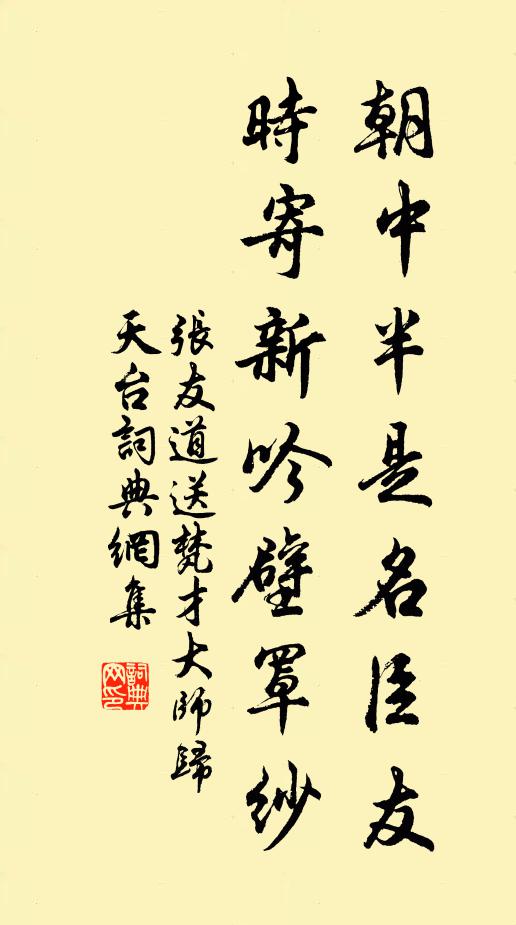 朝中半是名臣友
時寄新吟壁罩紗
張友道送梵才大師歸
天台詞典網集
詞典
网印